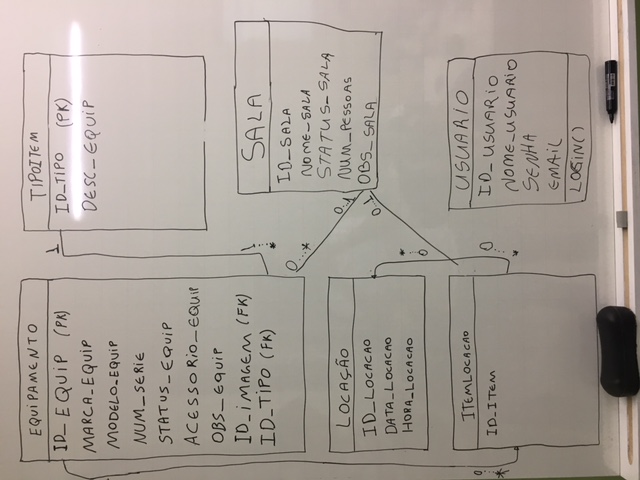 EQUIPAMENTO
ID_EQUIP (PK)
MARCA_EQUIP
MODELO_EQUIP
NUM_SERIE
STATUS_EQUIP
ACESSORIO_EQUIP
OBS_EQUIP
ID_IMAGEM (FK)
ID_TIPO (FK)
1
TIPOITEM
ID_TIPO (PK)
DESC_EQUIP
1...*
0...*
SALA
ID_SALA
NOME_SALA
STATUS_SALA
NUM_PESSOAS
OBS_SALA
0..1
0..1
LOCAÇÃO
ID_LOCACAO
DATA_LOCACAO
HORA_LOCACAO
0...*
ITEMLOCACAO
ID_ITEM
0...*
0...*
USUARIO
ID_USUARIO
NOME_USUARIO
SENHA
EMAIL
LOGIN()